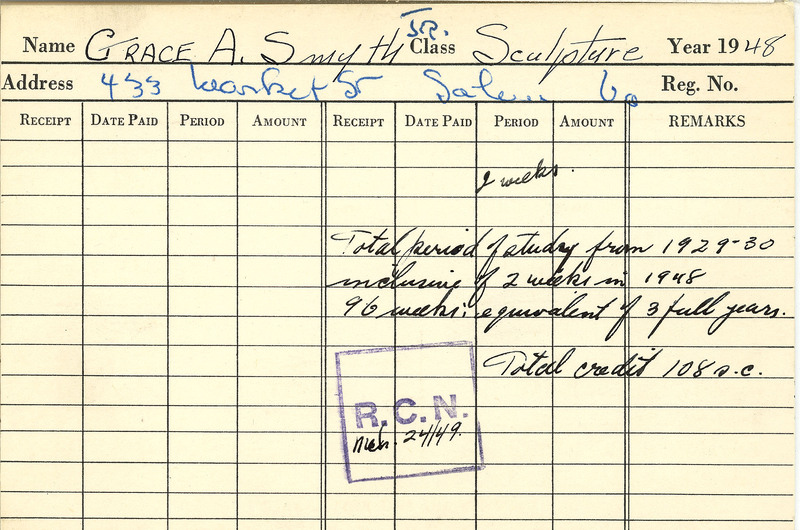 Name GRACE A. Smyth SR. Class Sculpture Year 1948
Address 433 Market St Salem Reg. No.
RECEIPT DATE PAID PERIOD AMOUNT RECEIPT DATE PAID PERIOD AMOUNT REMARKS
2 weeks.
Total period of study from 1929-30
inclusive of 2 weeks in 1948
96 weeks; equivalent of 3 full years.
Total credit 108 s.c.
R.C.N.
Mch. 24/49.